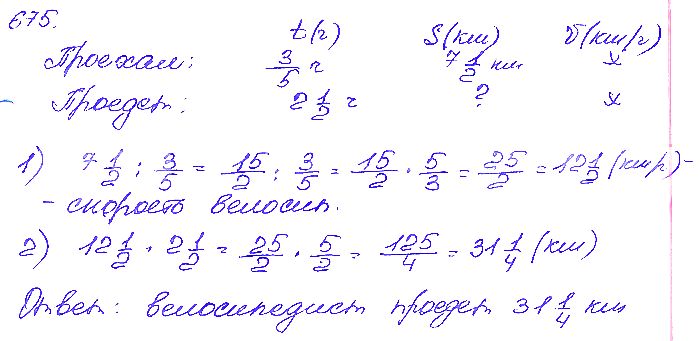 675.
t(ч) S(км) V(км/ч)
Проехал: 3/5 ч 7 1/2 км x
Проедет: 2 1/2 ч ? x
1) 7 1/2 : 3/5 = 15/2 : 3/5 = 15/2 · 5/3 = 25/2 = 12 1/2 (км/ч) -
- скорость велосип.
2) 12 1/2 · 2 1/2 = 25/2 · 5/2 = 125/4 = 31 1/4 (км)
Ответ: велосипедист проедет 31 1/4 км